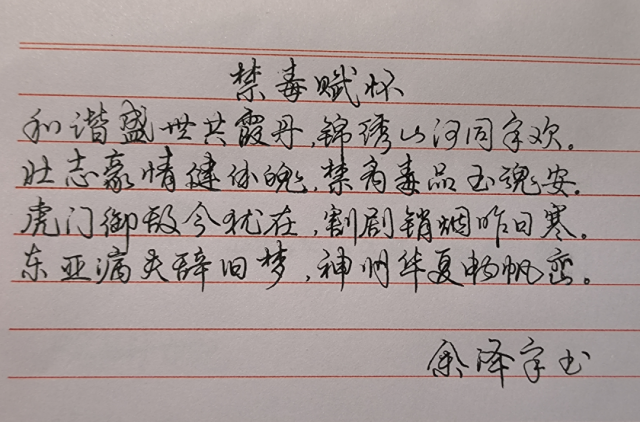 禁毒赋怀
和谐盛世共霞丹,锦绣山河同字欢。
壮志豪情健体魄,禁有毒品玉魂安。
虎门御敌今犹在,割剧销烟昨日寒。
东亚病夫辞旧梦,神州华夏畅帆
余泽宇书